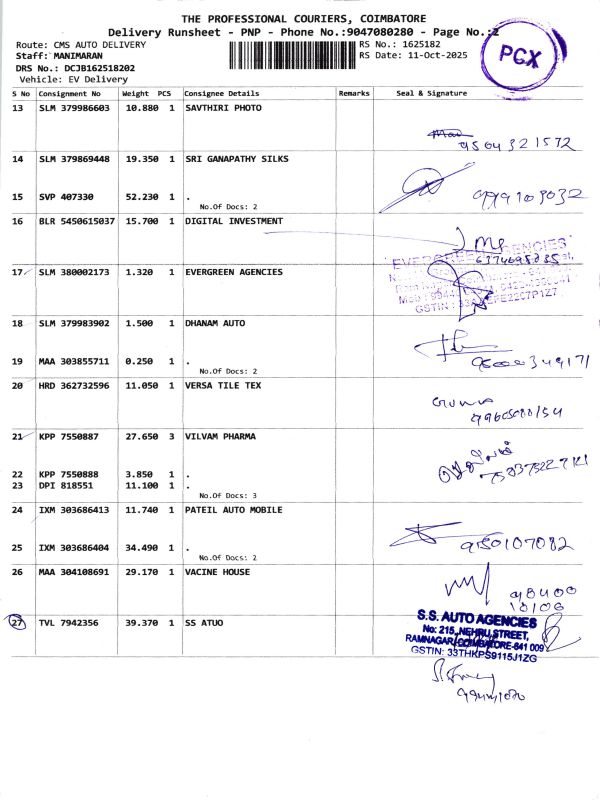 THE PROFESSIONAL COURIERS, COIMBATORE
Delivery Runsheet - PNP - Phone No.:9047080280 - Page No.:2
Route: CMS AUTO DELIVERY
RS No.: 1625182
PCX
Staff: MANIMARAN
RS Date: 11-Oct-2025
DRS No.: DCJB162518202
Vehicle: EV Delivery
S No Consignment No Weight PCS Consignee Details Remarks Seal & Signature
13 SLM 379986603 10.880 1 SAVTHIRI PHOTO
9504321572
14 SLM 379869448 19.350 1 SRI GANAPATHY SILKS
15 SVP 407330 52.230 1 .
No.Of Docs: 2
16 BLR 5450615037 15.700 1 DIGITAL INVESTMENT
EVERGREEN AGENCIES
17 SLM 380002173 1.320 1 EVERGREEN AGENCIES
18 SLM 379983902 1.500 1 DHANAM AUTO
19 MAA 303855711 0.250 1 .
No.Of Docs: 2
20 HRD 362732596 11.050 1 VERSA TILE TEX
21 KPP 7550887 27.650 3 VILVAM PHARMA
22 KPP 7550888 3.850 1 .
23 DPI 818551 11.100 1 .
No.Of Docs: 3
24 IXM 303686413 11.740 1 PATEIL AUTO MOBILE
25 IXM 303686404 34.490 1 .
9150107082
No.Of Docs: 2
26 MAA 304108691 29.170 1 VACINE HOUSE
98400
10106
27 TVL 7942356 39.370 1 SS ATUO
S.S. AUTO AGENCIES
No: 215, NEHRU STREET,
RAMNAGAR, COIMBATORE-641 009
GSTIN: 33THKPS9115J1ZG